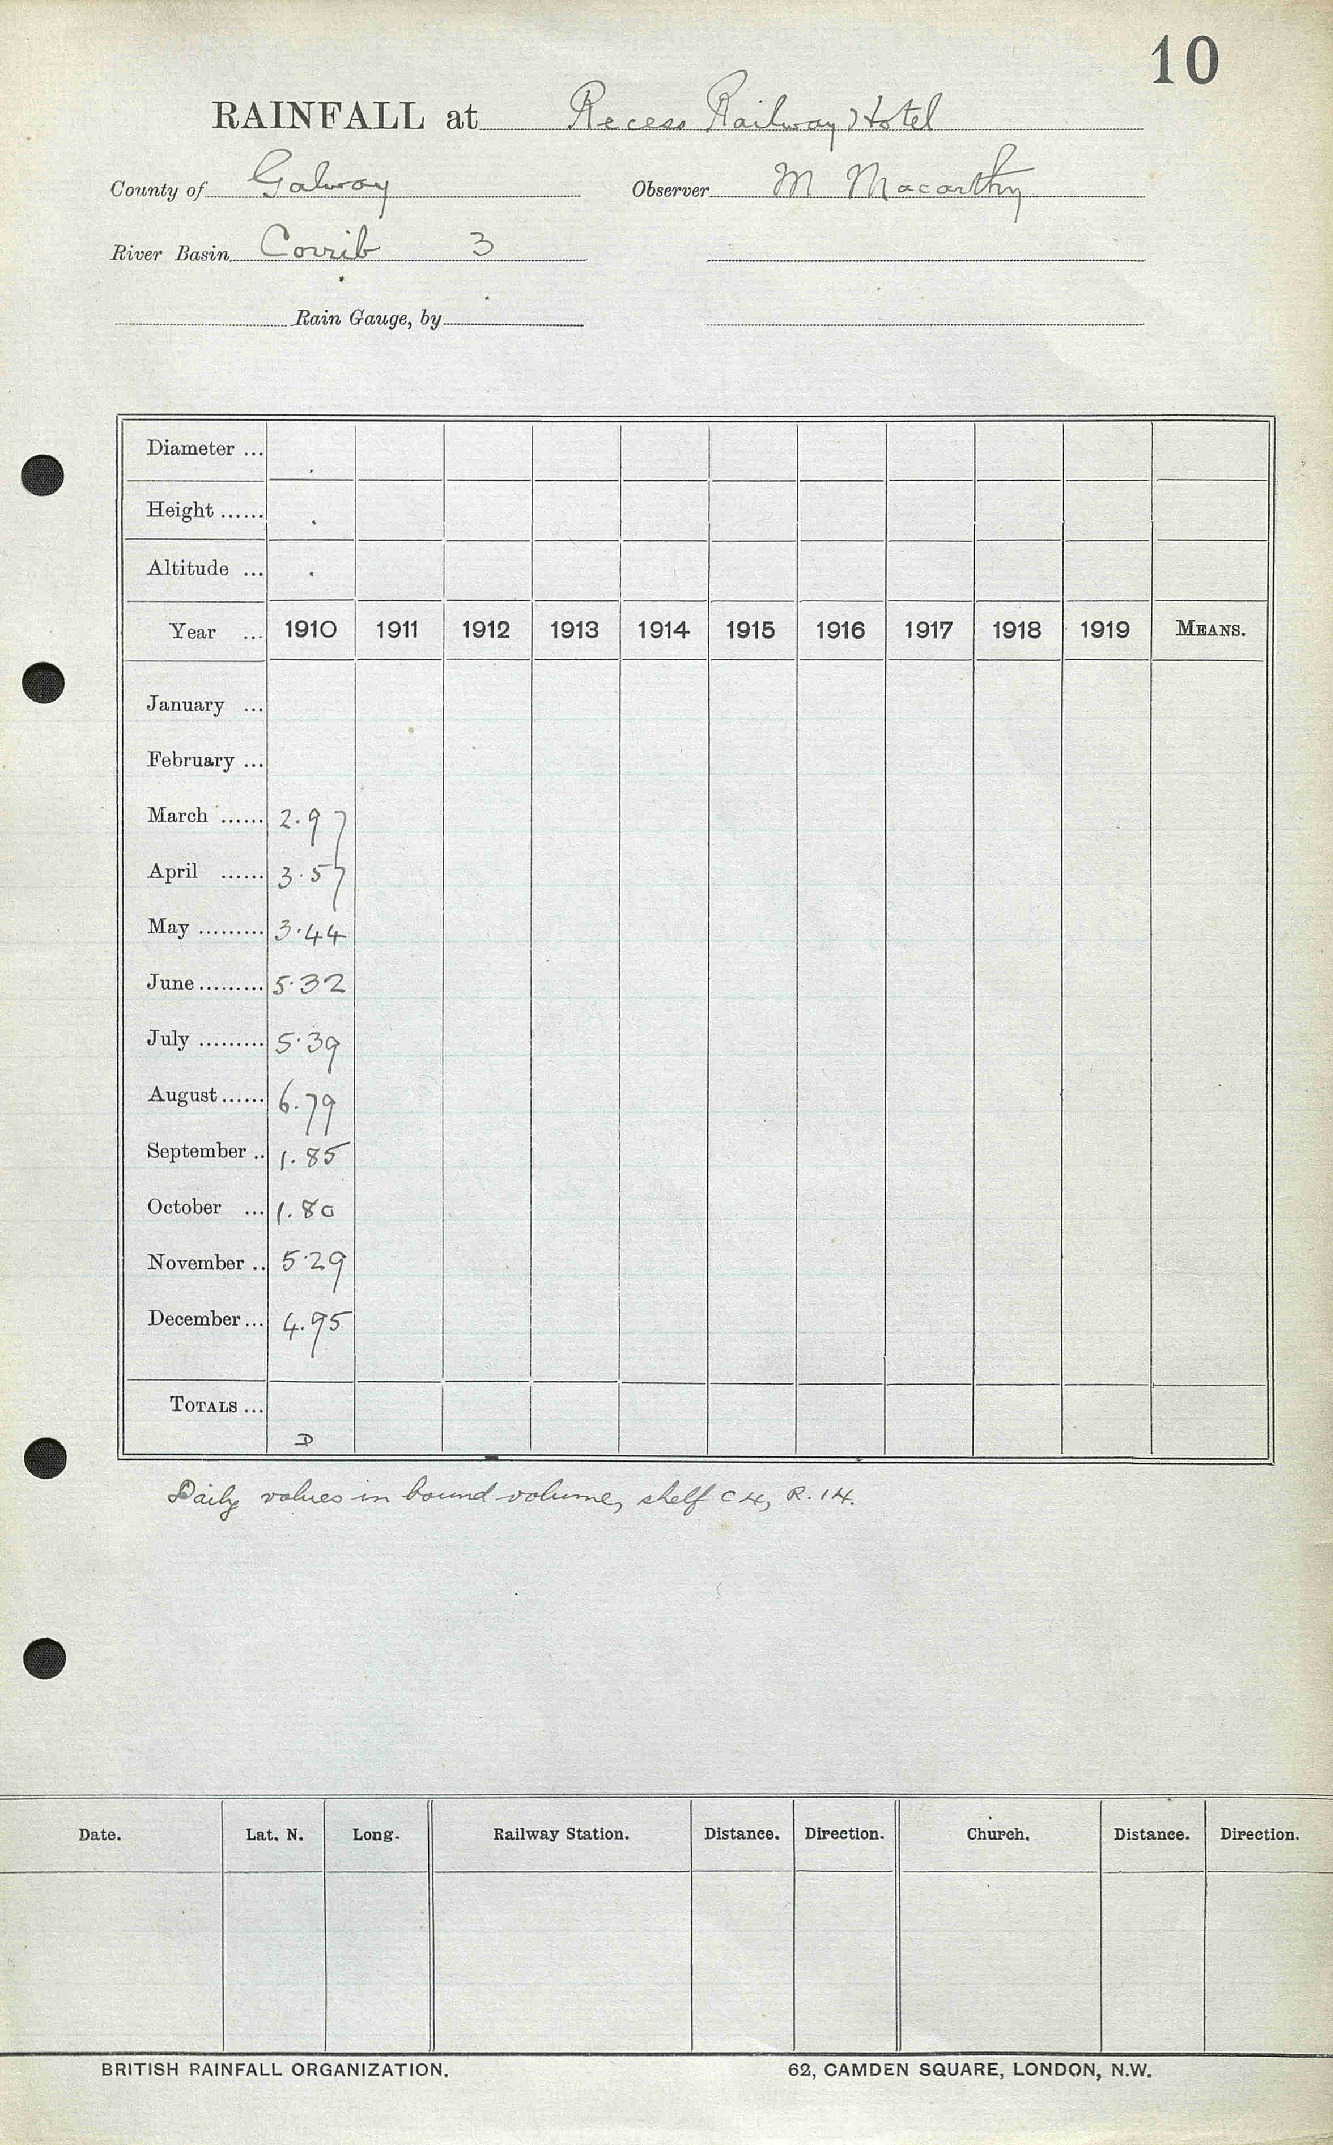 10
RAINFALL at Recess Railway Hotel
County of Galway Observer M Macarthy
River Basin Corrib 3
Rain Gauge, by
Diameter ...
Height ......
Altitude ...
Year ... 1910 1911 1912 1913 1914 1915 1916 1917 1918 1919 MEANS.
January ...
February ...
March ...... 2.97
April ...... 3.57
May ......... 3.44
June ......... 5.32
July ......... 5.39
August ...... 6.79
September .. 1.85
October ... 1.80
November .. 5.29
December ... 4.95
TOTALS ...
D
Daily values in bound volume, shelf C4, R.14.
Date. Lat. N. Long. Railway Station. Distance. Direction. Church. Distance. Direction.
BRITISH RAINFALL ORGANIZATION. 62, CAMDEN SQUARE, LONDON, N.W.